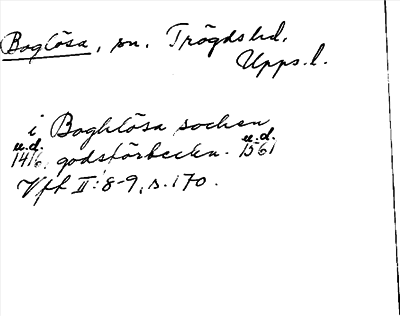 Boglösa, sn. Trögds hd.
Upps. l.
i Boghlösa sochen
u.d. u.d.
1416 godsförteckn. 1561
Vfl II: 8-9, s. 170.